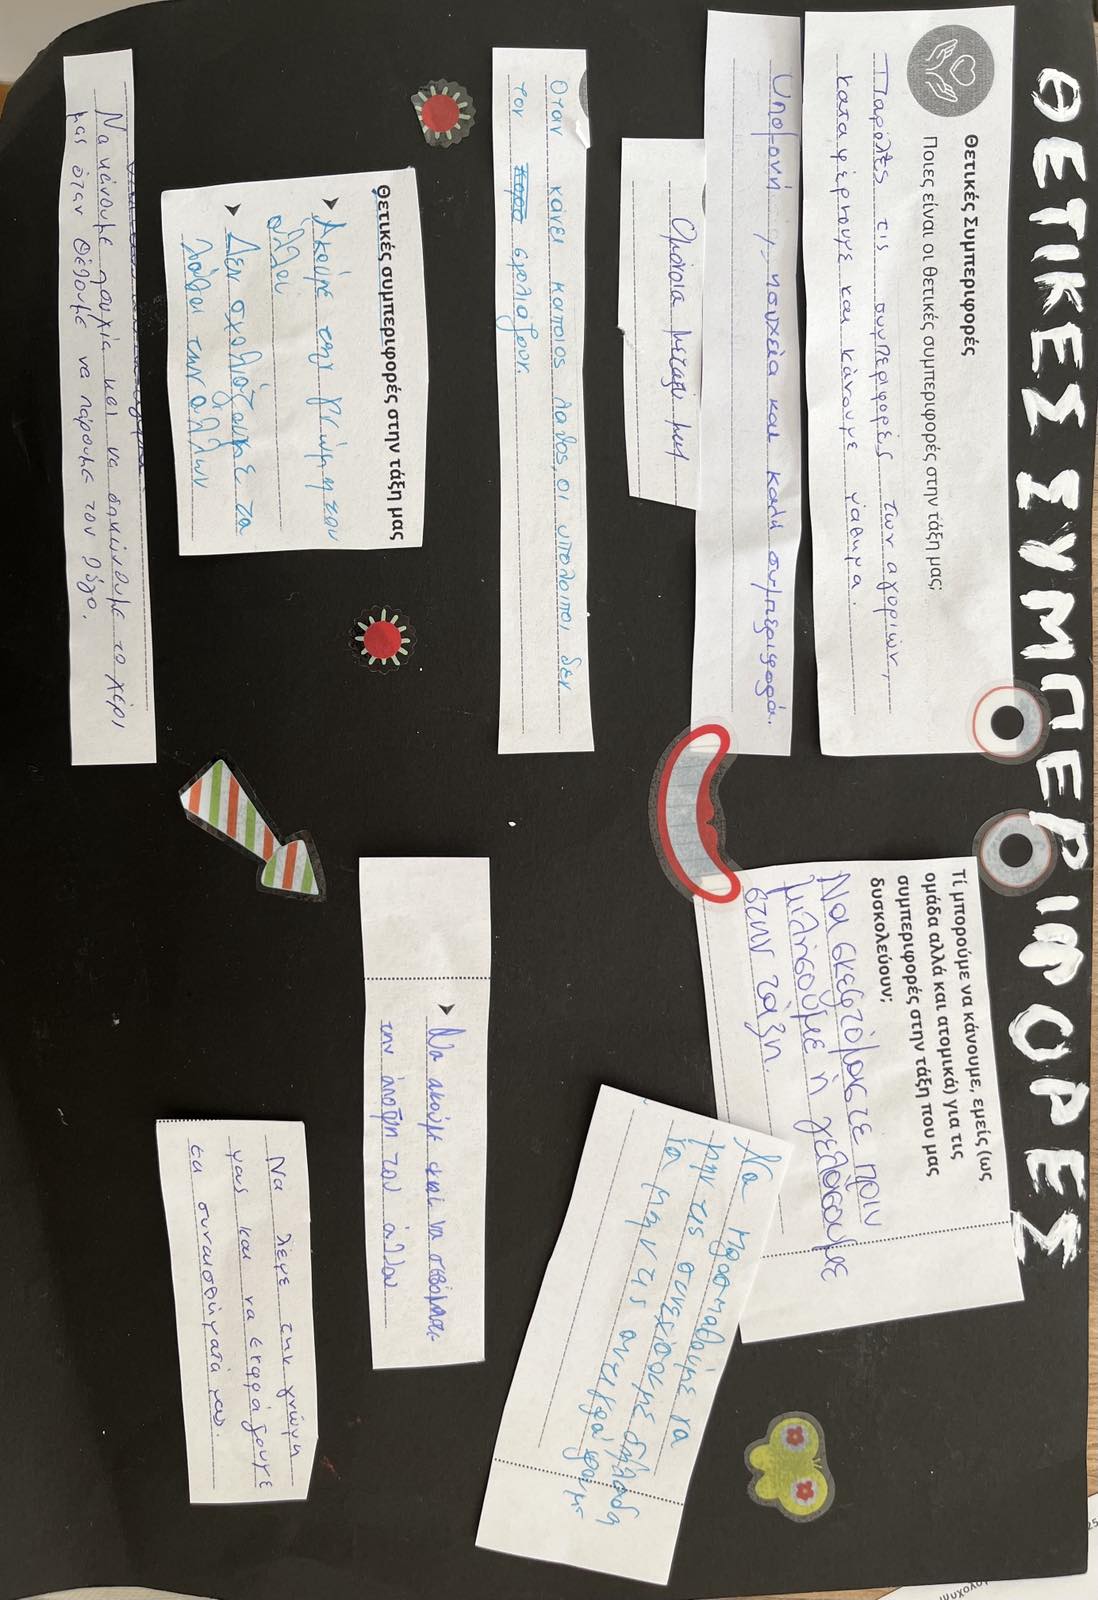 ΘΕΤΙΚΕΣ ΣΥΜΠΕΡΙΦΟΡΕΣ
Θετικές Συμπεριφορές
Ποιες είναι οι θετικές συμπεριφορές στην τάξη μας;
Παρόλες τις συμπεριφορές των αγοριών,
καταφέρνουμε και κάνουμε μάθημα.
Υπομονή, ησυχεία και καλή συμπεριφορά.
Ομόνοια μεταξύ μας
Όταν κάνει κάποιος λάθος, οι υπόλοιποι δεν
τον σχολιάζουν.
Θετικές συμπεριφορές στην τάξη μας
Ακούμε την γνώμη του
άλλου
Δεν σχολιάζουμε τα
λάθοι των άλλων
Να κάνουμε ησυχία και να σηκώνουμε το χέρι
μας όταν θέλουμε να πάρουμε τον λόγο.
Τί μπορούμε να κάνουμε, εμείς (ως
ομάδα αλλά και ατομικά) για τις
συμπεριφορές στην τάξη που μας
δυσκολεύουν;
Να σκεφτόμαστε πριν
μιλήσουμε ή γελάσουμε
στην τάξη.
Να προσπαθούμε να
μην τις συνεχίσουμε δηλαδή
να μην τις αντιγράψουμε
Να ακούμε και να σεβόμασ-
την άποψη του άλλου
Να λέμε την γνώμη
μας και να εκφράζουμε
τα συναισθήματά μας.